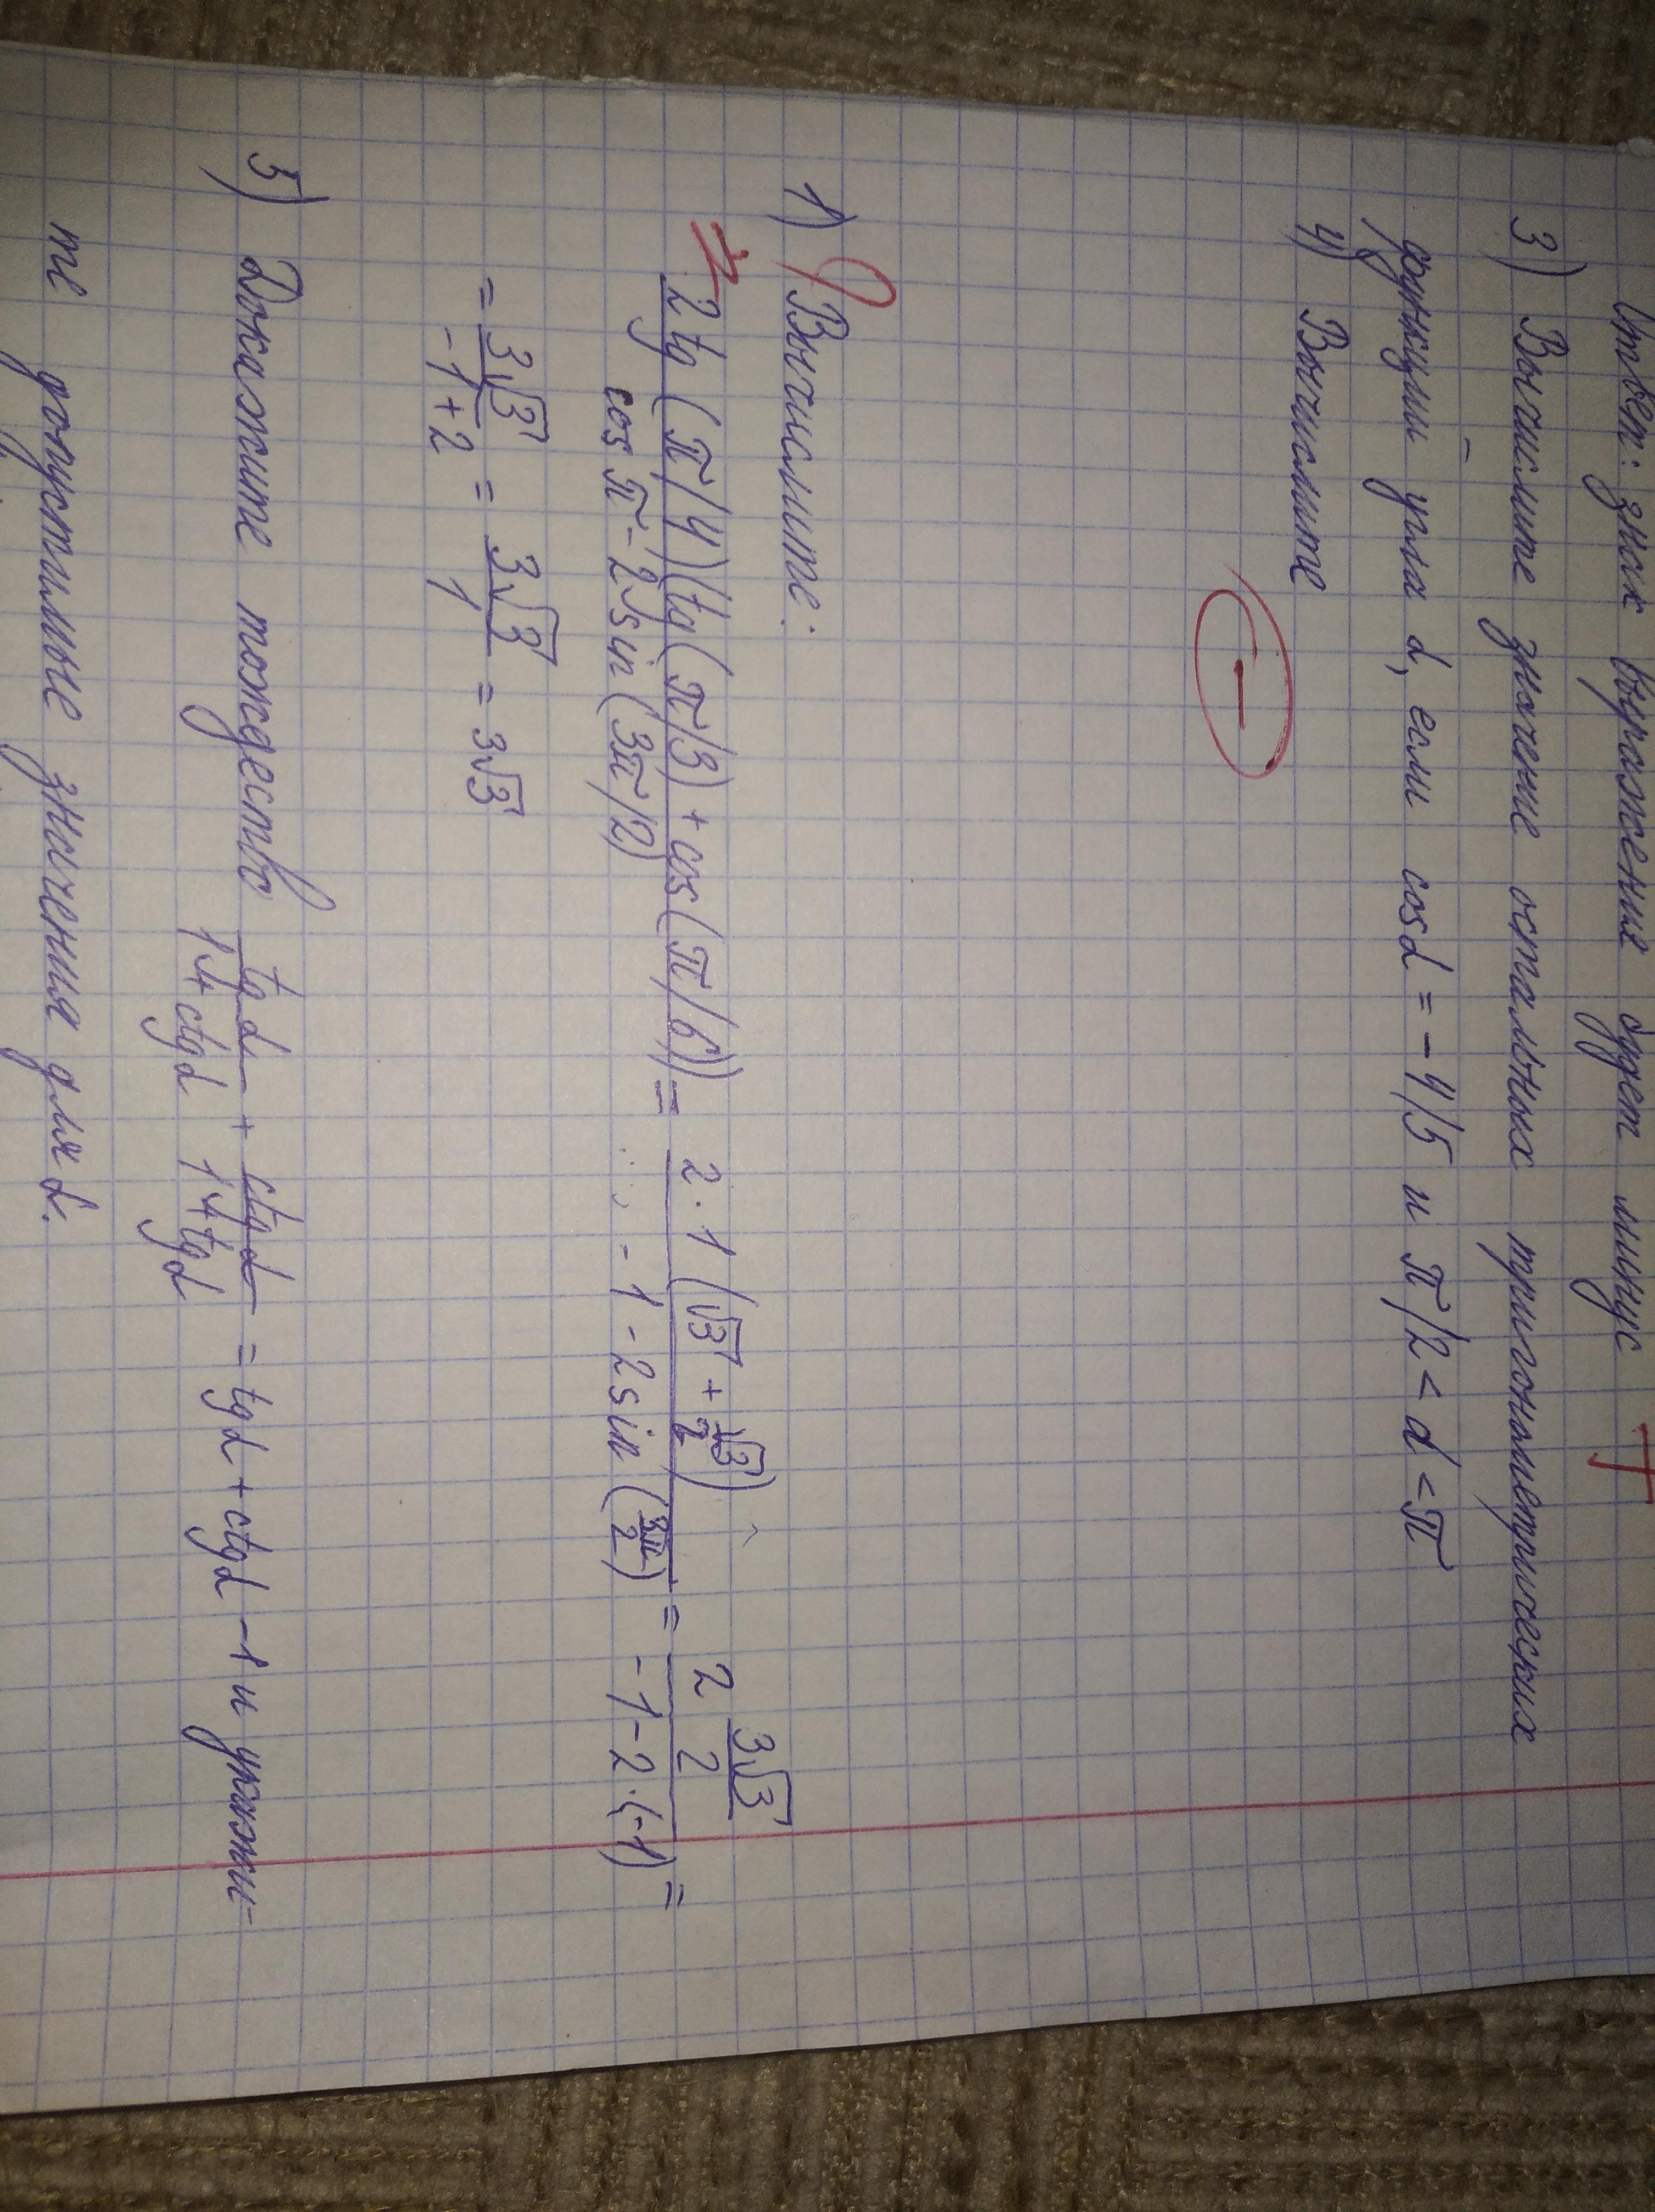 Ответ: знак выражения будет минус +
3) Вычислите значение остальных тригонометрических
функций угла α, если cosα = - 4/5 и π/2 < α < π
4) Вычислите
1) Вычислите:
2 tg (π/4)(tg(π/3) + cos(π/6)) / cos π - 2 sin(3π/2) = 2 · 1 (√3 + √3/2) / - 1 - 2 sin (3π/2) = 2 3√3/2 / - 1 - 2·(-1) =
= 3√3 / -1 + 2 = 3√3 / 1 = 3√3
5) Докажите тождество tgα / 1 + ctgα + ctgα / 1 + tgα = tgα + ctgα - 1 и укажи-
те допустимые значения для α.